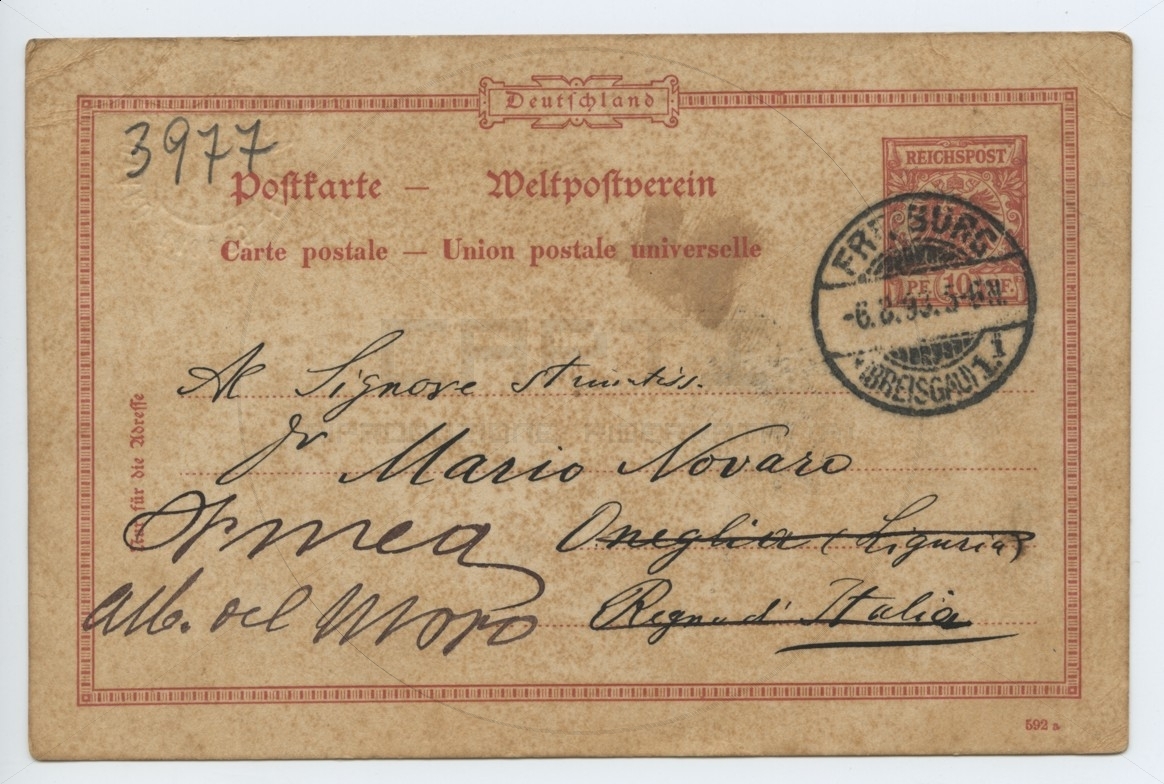 Deutschland
3977
Postkarte — Weltpostverein
Carte postale — Union postale universelle
REICHSPOST
PF. 10 PF.
FREIBURG
-6.8.93.5-6N.
(BREISGAU) 1. I
Al Signore
Dr Mario Novaro
Nur für die Adresse
Oneglia (Liguria)
Regno d' Italia
Alb. del Moro
592 a.